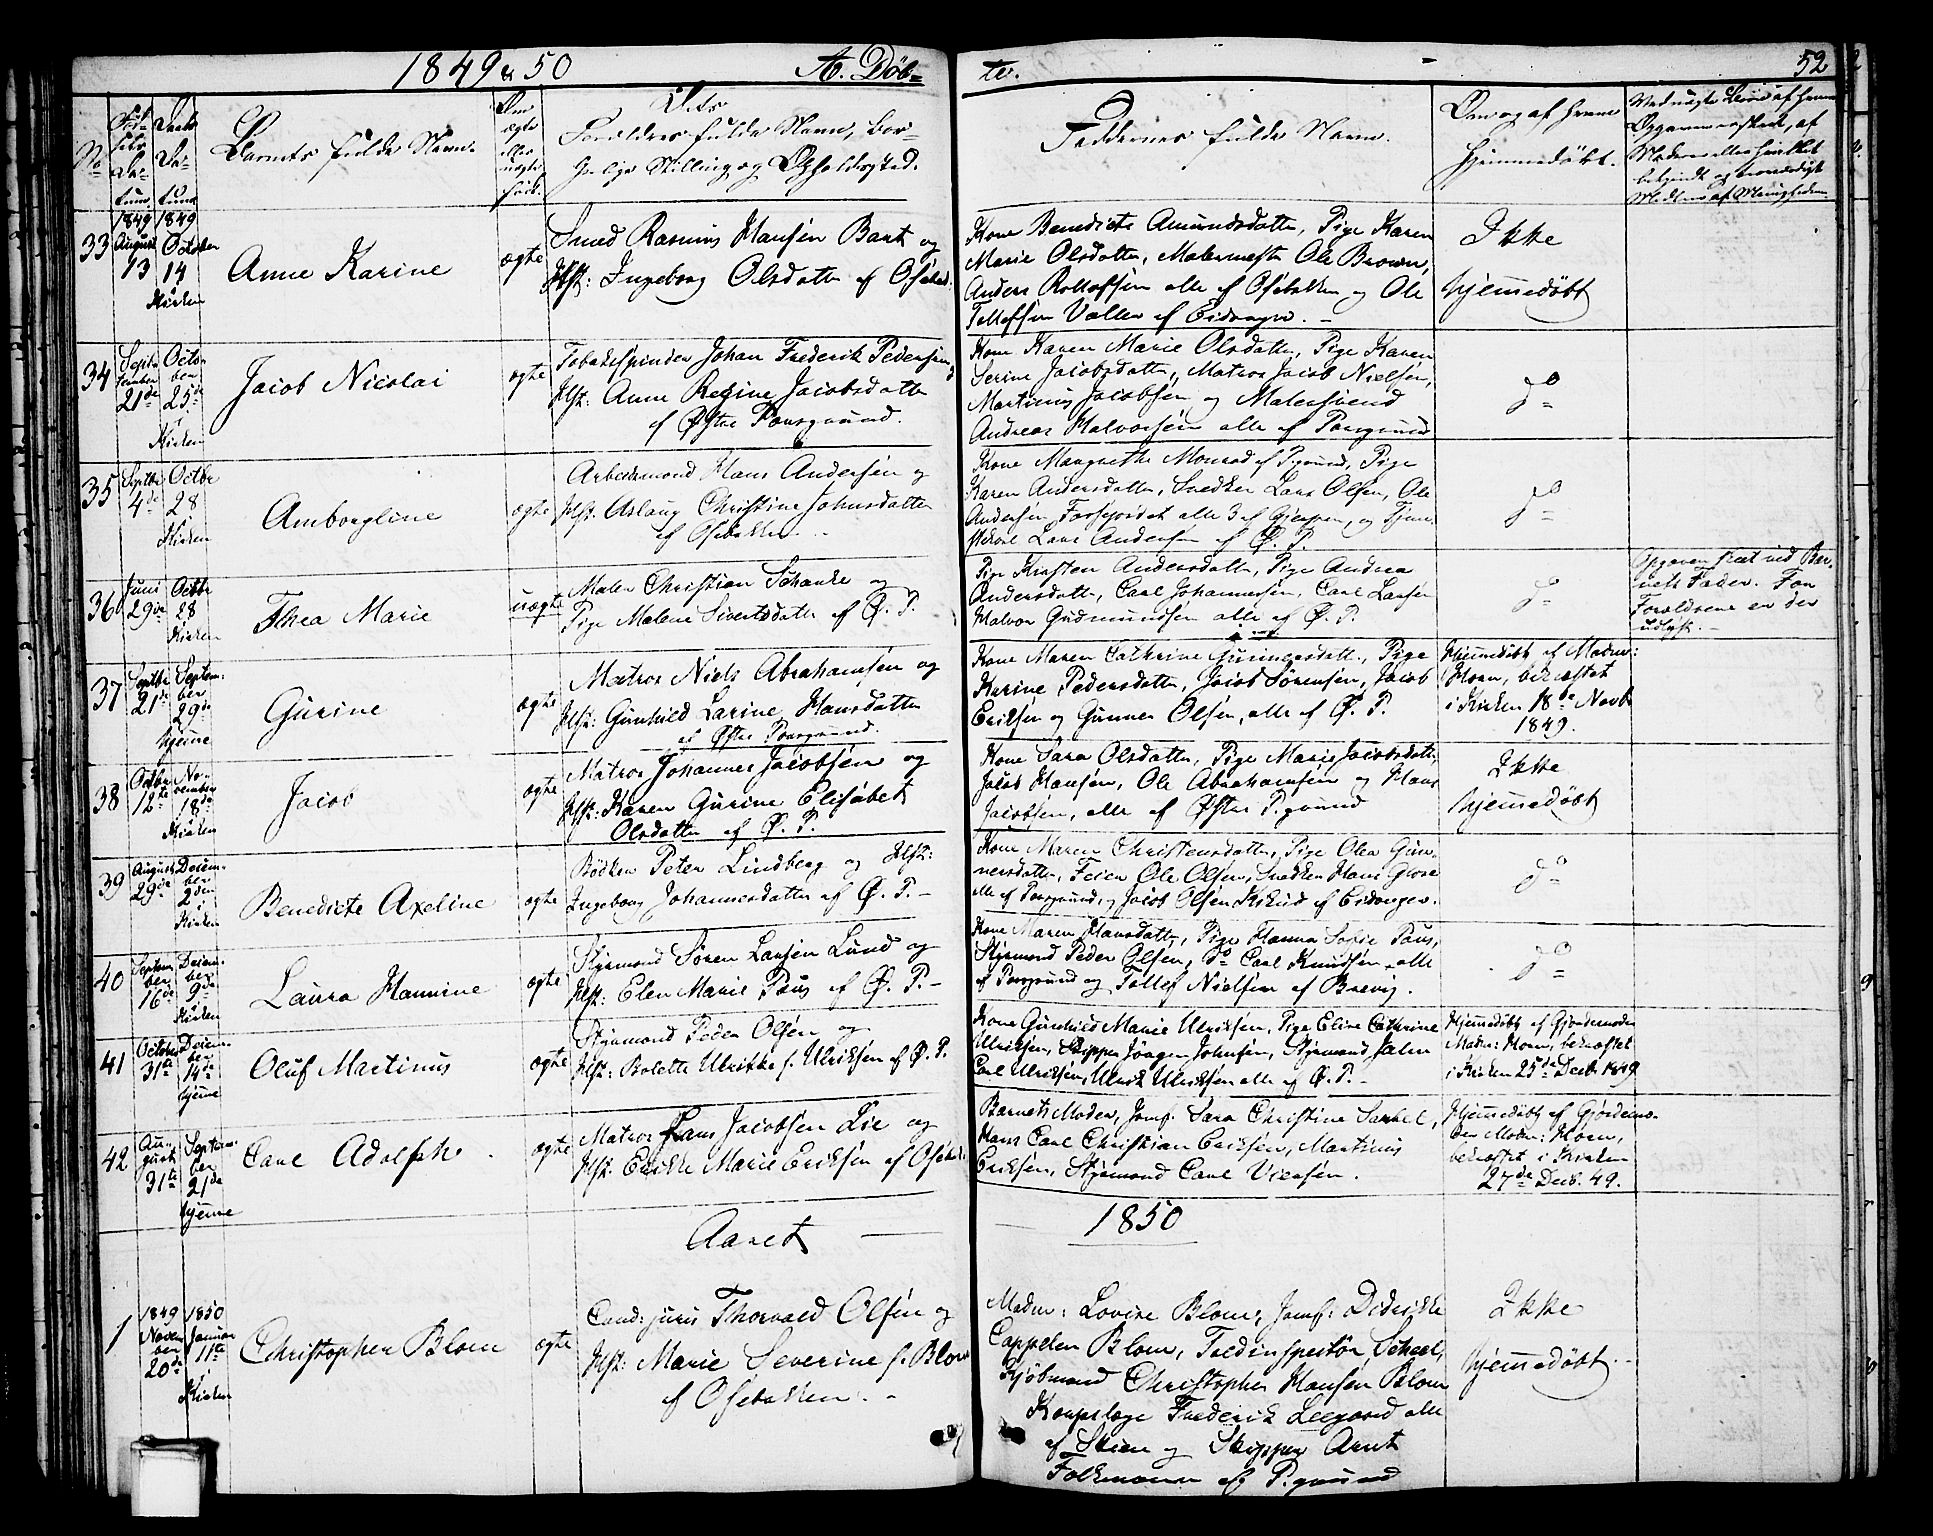 1849 & 50 A. Døb=
te. 52
No
Fød-
sels
Da-
tum
Daabs
Da-
tum
Barnets fulde Navn.
Om
ægte
eller
uægte
født.
Dets
Forældres fulde Navn, bor-
gerlige Stilling og Opholdssted.
Faddernes fulde Navn.
Om og af hvem
hjemmedøbt.
33
1849
August
13
1849
October
14
i
Kirken
Anne Karine
ægte
Smed Rasmus Hansen Bart og
Hst: Ingeborg Olsdatter af Osebak.
Kone Benedicte Amundsdatter, Pige Karen
Marie Olsdatter, Malermester Ole Brown,
Anders Rolloffsen alle af Osebakken og Ole
Tollefsen Valler af Eidanger. –
Ikke
hjemmedøbt
34
Septr
tember
21de
Octo-
ber
25de
i
Kirken
Jacob Nicolai
ægte
Tobakspinder Johan Frederik Pedersen og
Hst: Anne Regine Jacobsdatter
af Øster Porsgrund.
Kone Karen Marie Olsdatter, Pige Karen
Serine Jacobsdatter, Matros Jacob Nielsen,
Martinus Jacobsen og Malersvend
Andreas Halvorsen alle af Porsgrund
do
35
Septbr
4de
Octbr
28
i
Kirken
Amborgline
ægte
Arbeidsmand Hans Andersen og
Hst. Aslaug Christine Johnsdatter
af Osebakken. –
Kone Margrethe Monrad af Pgrund, Pige
Karen Andersdatter, Snedker Lars Olsen, Ole
Andersen alle 3 af Gjerpen, og
Lars Andersen af Ø. P.
do
36
Juni
29de
Octbr
28
Kirken
Thea Marie
uægte
Maler Christian Schanke og
Pige Malene Sivertsdatter af Ø. P.
Pige Kirsten Andersdatter, Pige Andrea
Andersdatter, Carl Johannesen, Carl Larsen
Halvor Gudmundsen alle af Ø. P.
do
Opgaven skeet ved Bar-
nets Fader. For
Forældrene er der
udlyst. –
37
Septbr
21de
Septem-
ber
29de
hjemme
Gurine
ægte
Matros Niels Abrahamsen og
Hst: Gunhild Larine Hansdatter
af Øster Porsgrund.
Kone Maren Cathrine Gunnersdatt., Pige
Karine Pedersdatter, Jacob Sørensen, Jacob
Eriksen og Gunner Olsen, alle af Ø. P.
Hjemmedøbt af Madm:
Horn, bekræftet
i Kirken 18de Novbr
1849.
38
Octbr
12te
No-
vember
18de
i
Kirken
Jacob
ægte
Matros Johannes Jacobsen og
Hst: Karen Gurine Elisabet
Olsdatter af Ø. P.
Kone Sara Olsdatter, Pige Marie Jacobsdatt.,
Jacob Hansen, Ole Abrahamsen og Hans
Jacobsen, alle af Øster P.grund
Ikke
hjemmedøbt
39
August
29de
Decem-
ber
2den
i
Kirken
Benedicte Axeline
ægte
Bødker Peter Lindberg og Hst:
Ingeborg Johannesdatter af Ø. P. –
Kone Maren Christensdatter, Pige Olea Gun-
nersdatter, Feier Ole Olsen, Snedker Hans Grove
alle af Porsgrund, og Jacob Olsen af Eidanger.
do
40
Septem-
ber
16de
Decem-
ber
9de
i
Kirken
Laura Hannine
ægte
Styrmand Søren Larsen Lund og
Hst: Elen Marie Paus af Ø. P. –
Kone Maren Hansdatter, Pige Hanna Sofie Paus,
Styrmand Peder Olsen, do Carl Knudsen, alle
af Porsgrund og Tollef Nielsen af Brevig.
do
41
October
31te
Decem-
ber
14de
hjemme
Oluf Martinus
ægte
Styrmand Peder Olsen og
Hst: Bolette Ulrikke f. Ulriksen af Ø. P.
Kone Gunhild Marie Ulriksen, Pige Elise Cathrine
Ulriksen, Skipper Jørgen Johnsen, Styrmand Halvor
Carl Ulriksen, Ulrik Ulriksen alle af Ø. P. –
Hjemmedøbt af Gjordemoder
Madm: Horn, bekræftet
i Kirken 25de Decbr 1849
42
Au-
gust
31te
Septem-
ber
21de
hjemme
Carl Adolph.
ægte
Matros Lars Jacobsen Lie og
Hst. Erikke Marie Eriksen af Osebak.
Barnets Moder, Jomf. Sara Christine Sankel,
Hans Carl Christian Eriksen, Martinus
Eriksen, Styrmand Carl Viersen.
Hjemmedøbt af Gjordemo-
der Madm: Horn,
bekræftet i Kirken
27de Decb. 49.
Aaret 1850
1
1849
Novem
ber
20de
1850
Januar
11te
i
Kirken
Christopher Blom
ægte
Cand: juris Thorvald Olsen og
Hst: Marie Severine f. Blom
af Osebakken. –
Madm: Lovise Blom, Jomf: Didrikke
Cappelen Blom, Toldinspectør Scheel,
Kjøbmand Christopher Hansen Blom
Frederik Leegaard alle
af Skien og Skipper Arnt
Folkmann af P.grund
Ikke
hjemmedøbt.